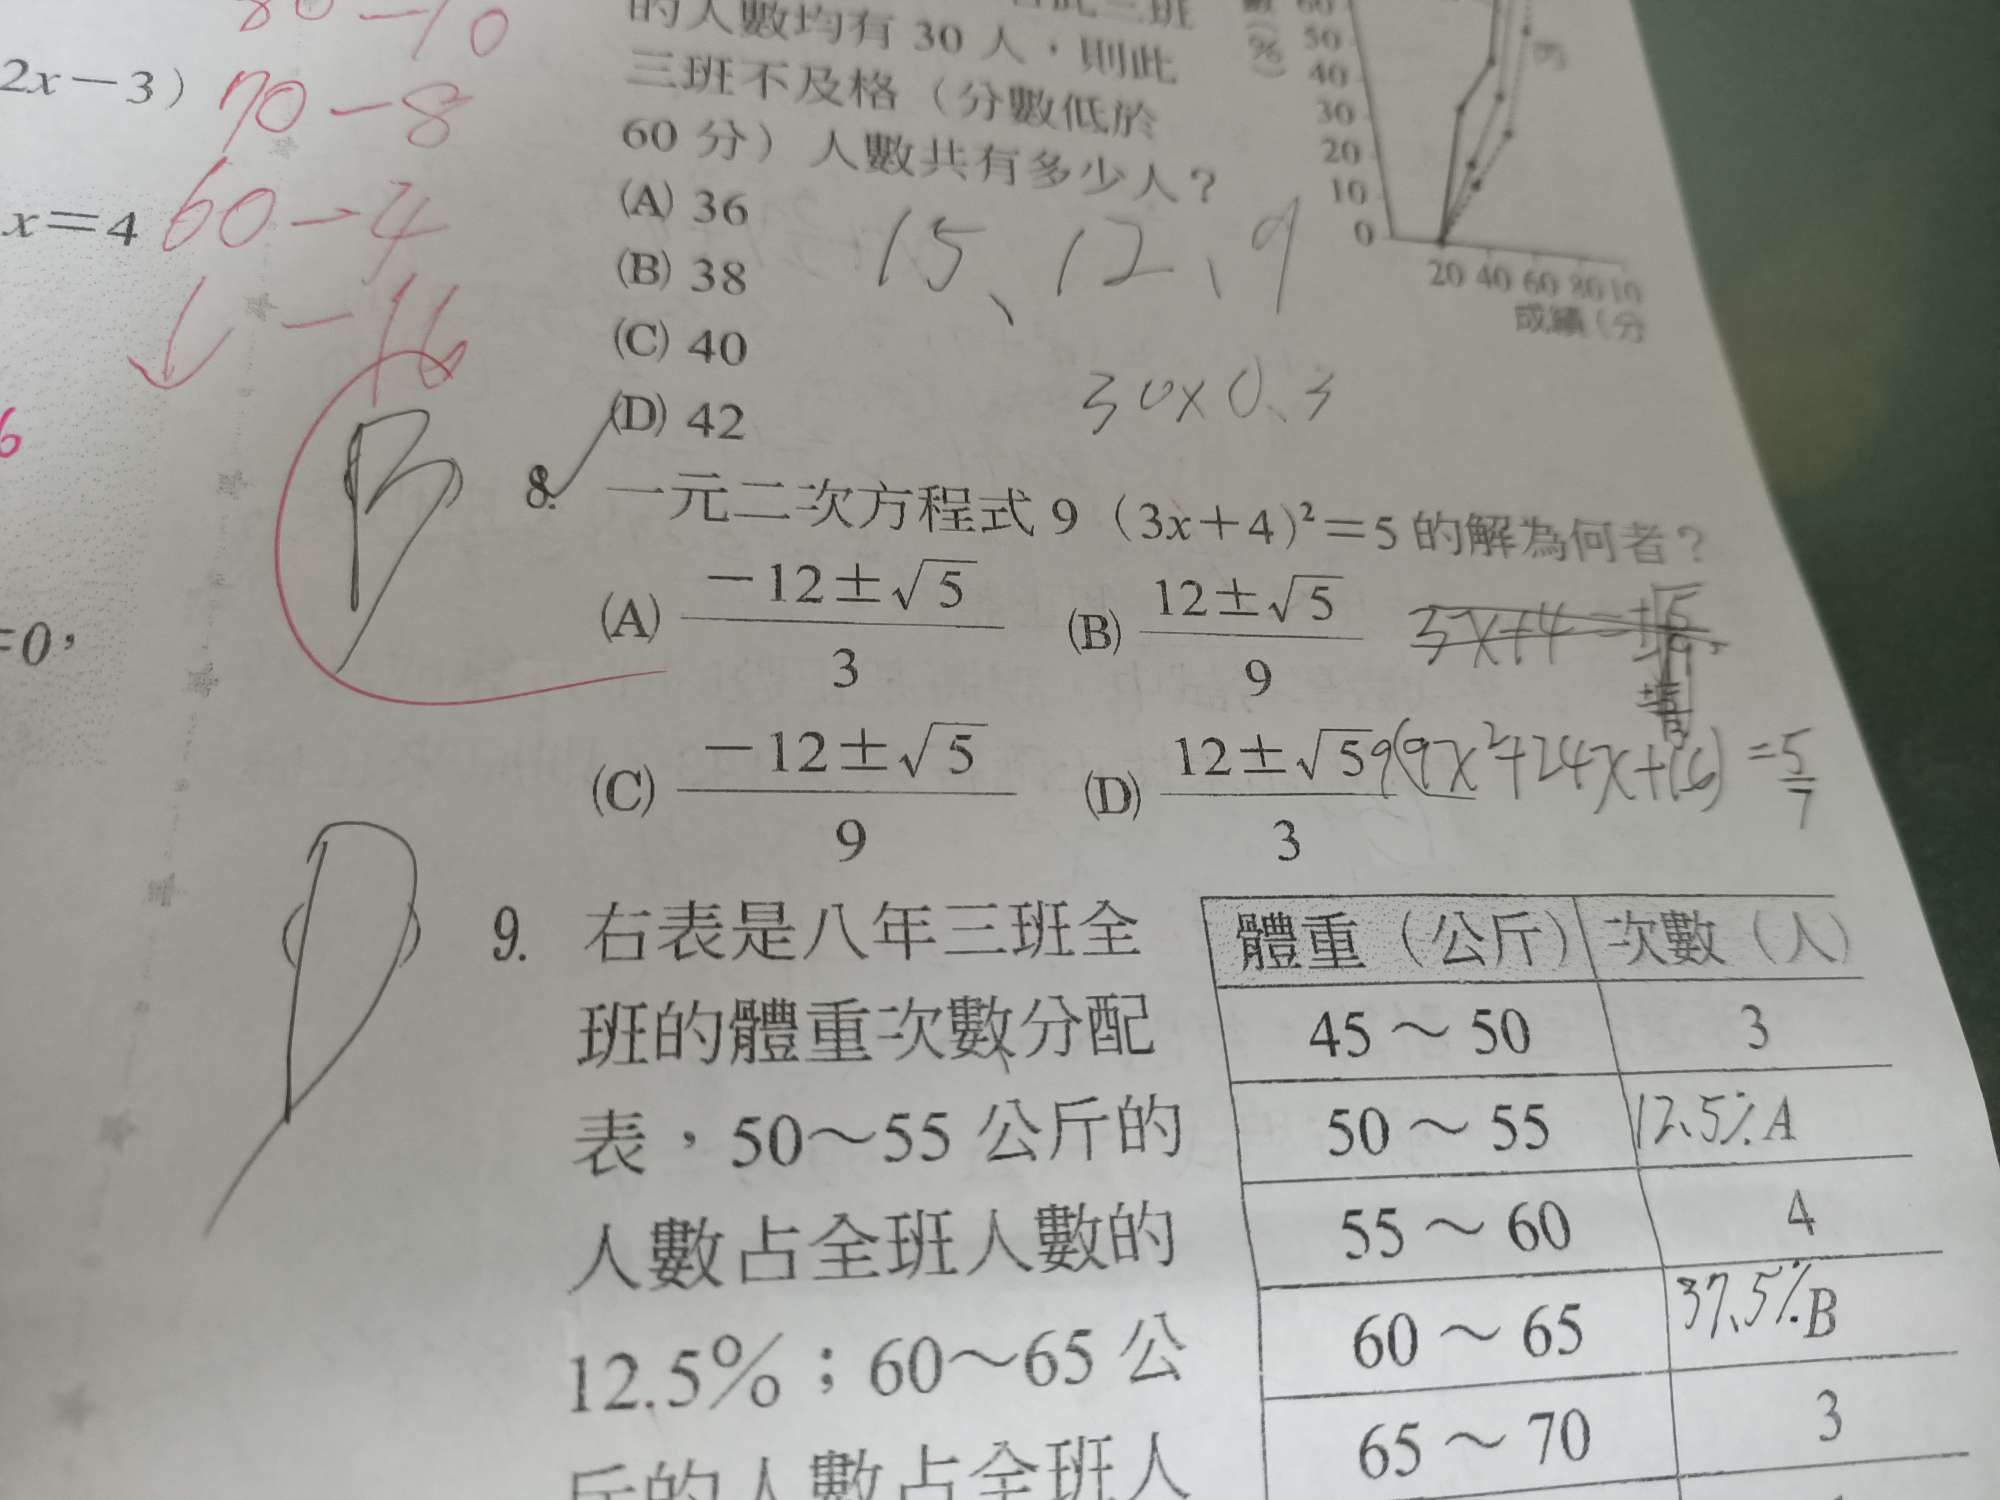 2x－3）
x＝4
=0，
6
80－10
70－8
60－4
－16
的人數均有 30 人，則此
三班不及格（分數低於
60 分）人數共有多少人？
(A) 36
(B) 38
(C) 40
(D) 42
15、12、9
30×0.3
(%)
60
50
40
30
20
10
0
丙
20 40 60 80 10
成績（分
B
8. 一元二次方程式 9（3x＋4）²＝5 的解為何者？
(A) －12±√5 / 3 (B) 12±√5 / 9
(C) －12±√5 / 9 (D) 12±√5 / 3
9(9x²+24x+16) = 5/7
9. 右表是八年三班全
班的體重次數分配
表，50～55 公斤的
人數占全班人數的
12.5％；60～65 公
斤的人數占全班人
體重（公斤） 次數（人）
45～50 3
50～55 12.5% A
55～60 4
60～65 37.5% B
65～70 3